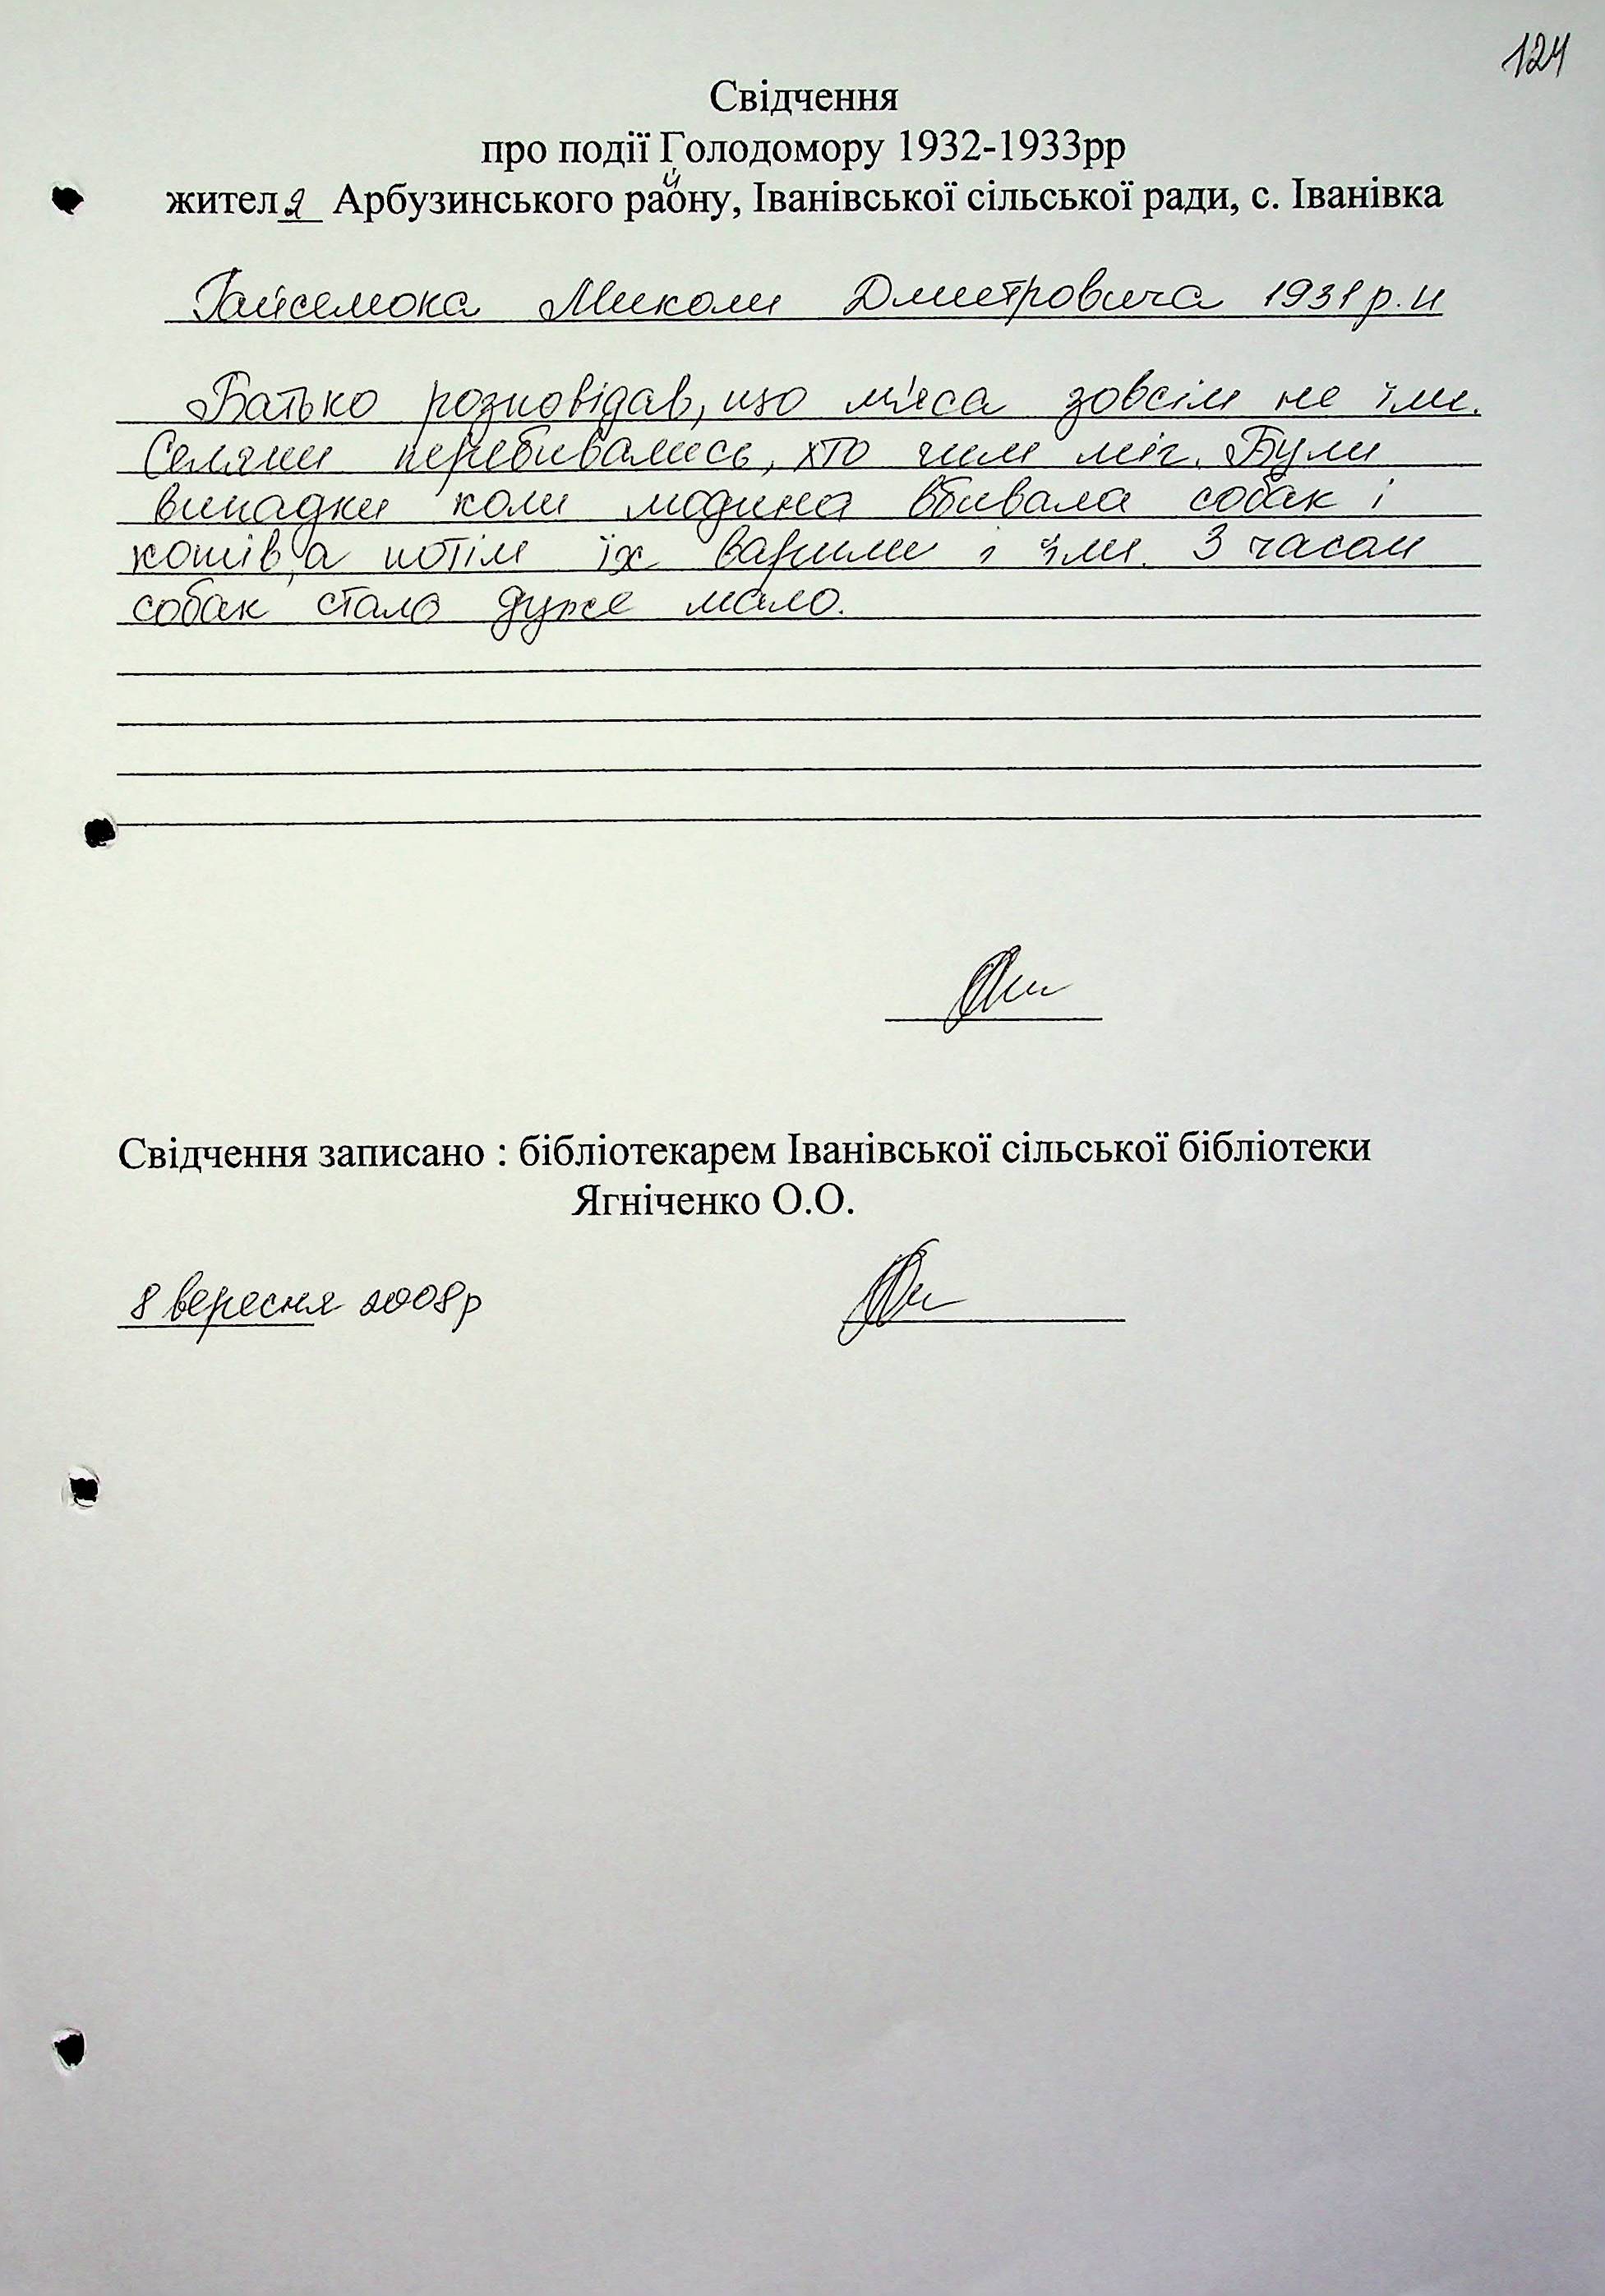 124
Свідчення
про події Голодомору 1932-1933рр
жителя Арбузинського району, Іванівської сільської ради, с. Іванівка
Миколи Дмитровича 1931 р.н
Батько розповідав, що м'яса зовсім не їли.
Селяни перебивались, хто чим міг. Були
випадки коли людина вбивала собак і
котів, а потім їх варили і їли. З часом
собак стало дуже мало.
Свідчення записано : бібліотекарем Іванівської сільської бібліотеки
Ягніченко О.О.
8 вересня 2008р